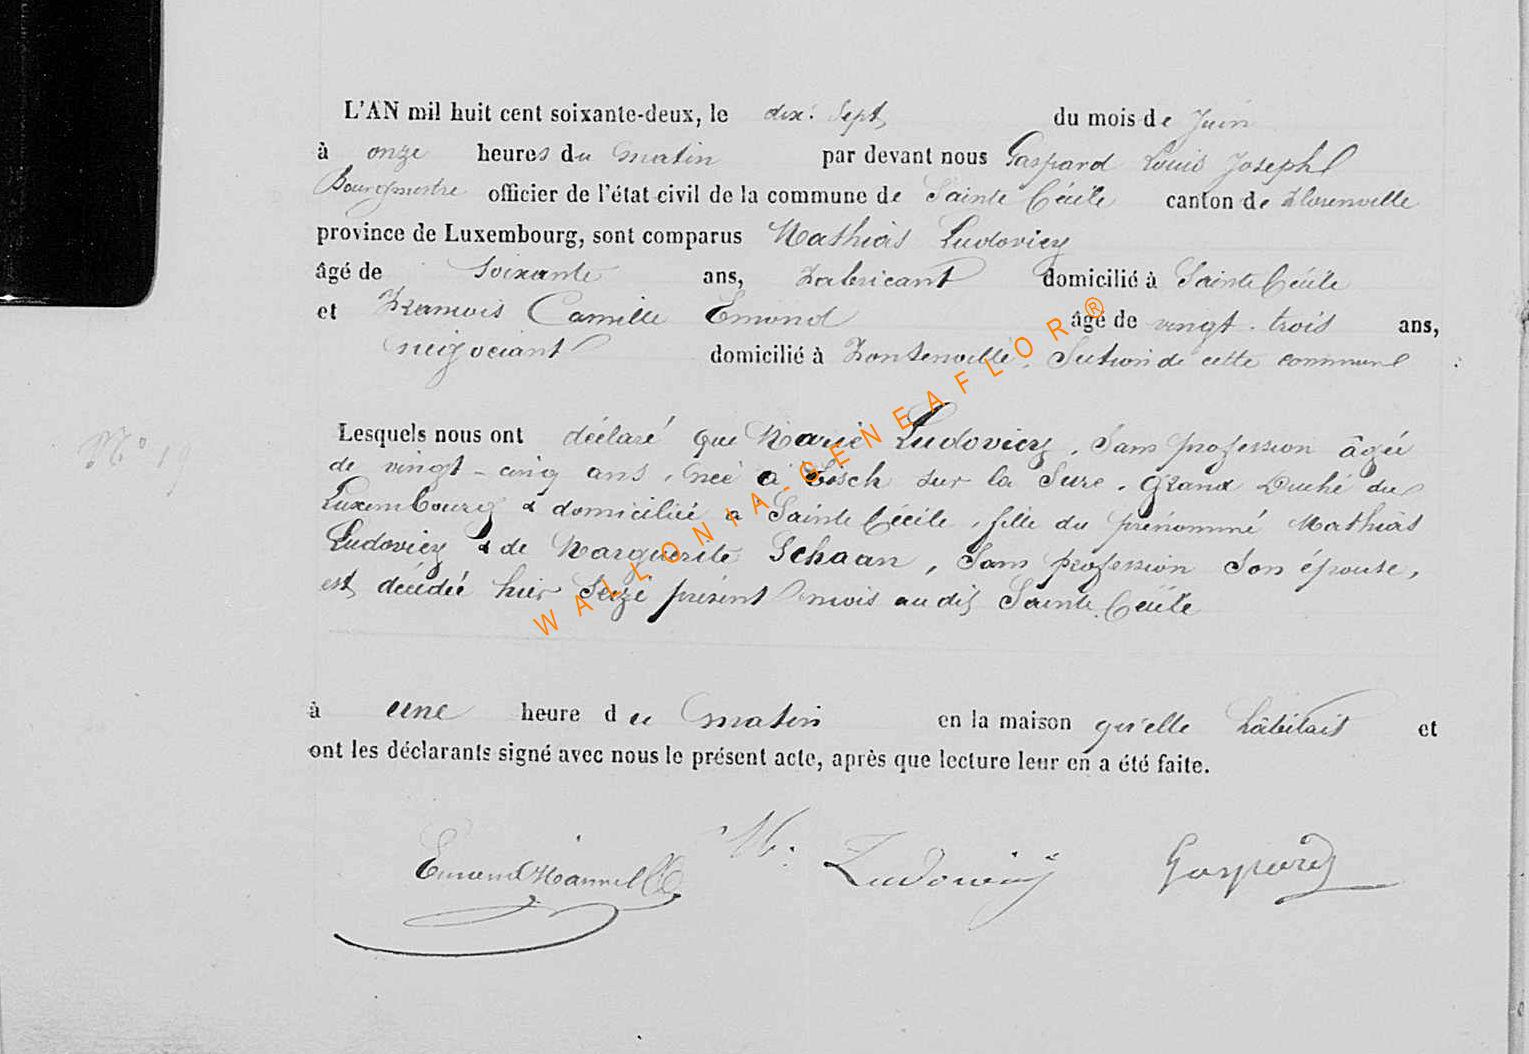 L'AN mil huit cent soixante-deux, le dix-sept du mois de Juin
à onze heures du matin par devant nous Gaspard Louis Joseph
Bourgmestre officier de l'état civil de la commune de Sainte Cécile canton de Florenville
province de Luxembourg, sont comparus Mathias Ludovicy
âgé de soixante ans, Fabricant domicilié à Sainte Cécile
et François Camille Emond âgé de vingt-trois ans,
négociant domicilié à Fontenoille, Section de cette commune
Lesquels nous ont déclaré que Marie Ludovicy, Sans profession âgée
de vingt-cinq ans, née à Esch sur la Sure, Grand Duché du
Luxembourg & domiciliée à Sainte Cécile, fille du prénommé Mathias
Ludovicy & de Marguerite Schaan, Sans profession Son épouse,
est décédée hier Seize présent mois audit Sainte Cécile
N° 19
à une heure du matin en la maison qu'elle habitait et
ont les déclarants signé avec nous le présent acte, après que lecture leur en a été faite.
Emond M. Ludovicy Gaspard
WALLONIA-GENEAFLOR®